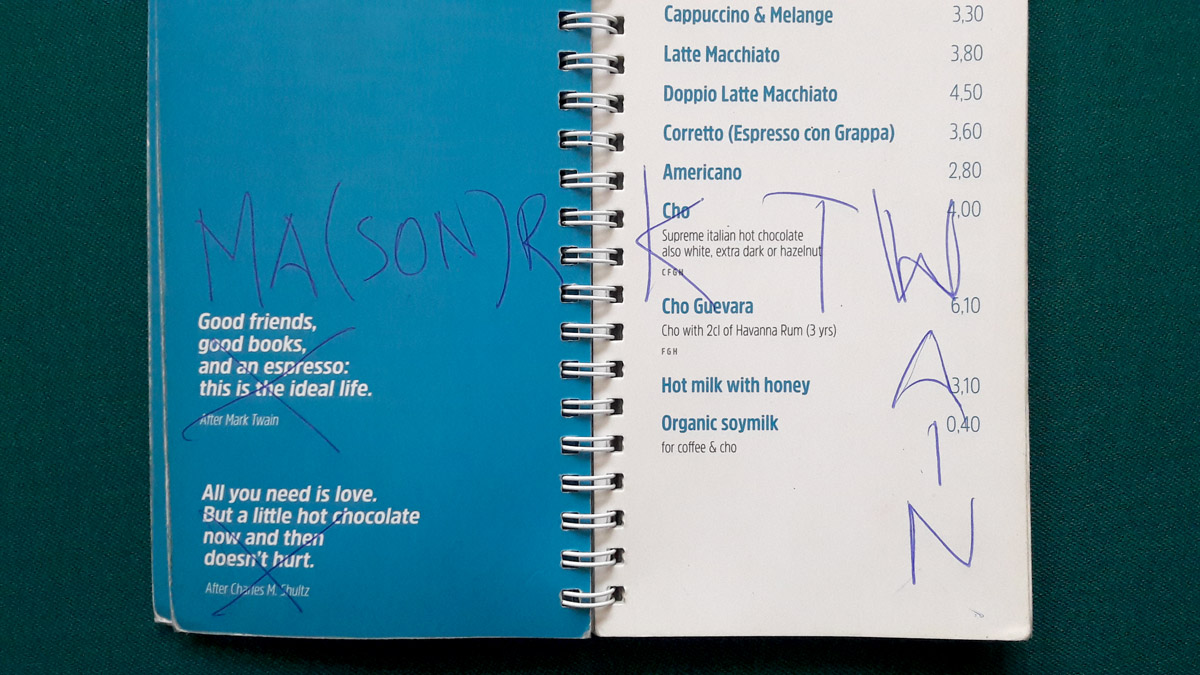 Cappuccino & Melange 3,30
Latte Macchiato 3,80
Doppio Latte Macchiato 4,50
Corretto (Espresso con Grappa) 3,60
Americano 2,80
Cho 4,00
Supreme italian hot chocolate
also white, extra dark or hazelnut
C F G H
Cho Guevara 6,10
Cho with 2cl of Havanna Rum (3 yrs)
F G H
Hot milk with honey 3,10
Organic soymilk 0,40
for coffee & cho
MA(SON)R K T W
A
I
N
Good friends,
good books,
and an espresso:
this is the ideal life.
After Mark Twain
All you need is love.
But a little hot chocolate
now and then
doesn't hurt.
After Charles M. Shultz